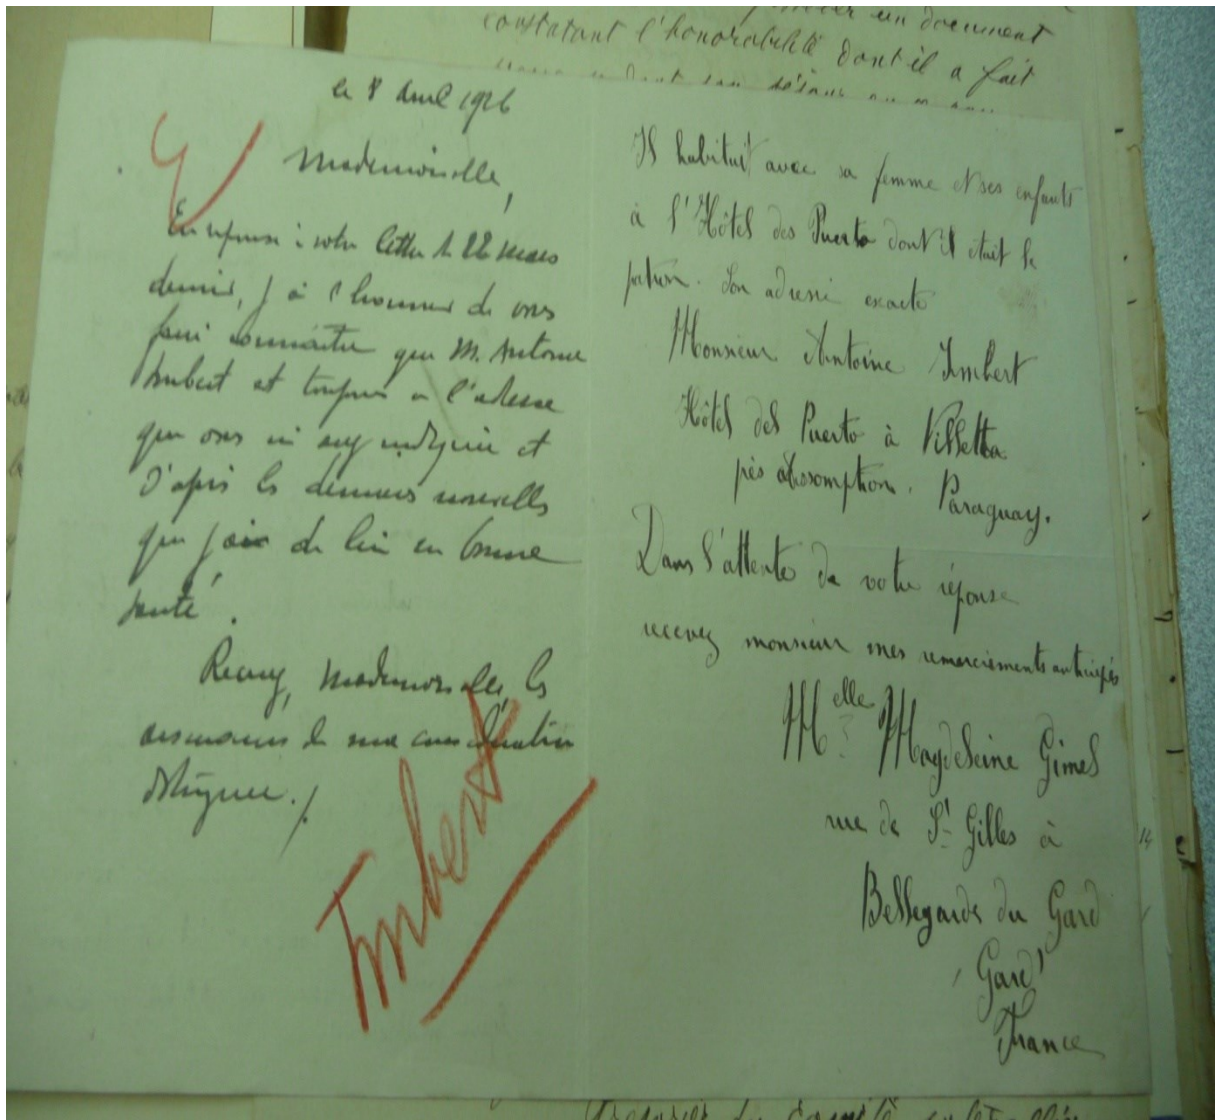 constatant l'honorabilité dont il a fait
un document
le 8 Avril 1926
Mademoiselle,
En réponse à votre lettre du 22 mars
dernier, j'ai l'honneur de vous
faire connaître que M. Antoine
Imbert est toujours à l'adresse
que vous indiquée et
d'après les dernières nouvelles
que j'ai de lui en bonne
santé.
Recevez, Mademoiselle, les
assurances de ma considération
distinguée./.
Imbert
Il habitait avec sa femme et ses enfants
à l'Hôtel des Puerto dont il était le
patron. Son adresse exacte
Monsieur Antoine Imbert
Hôtel del Puerto à Villetta
près Assomption. Paraguay.
Dans l'attente de votre réponse
recevez monsieur mes remerciements anticipés
Melle Magdeleine Gimel
rue de St Gilles à
Bellegarde du Gard
Gard
France